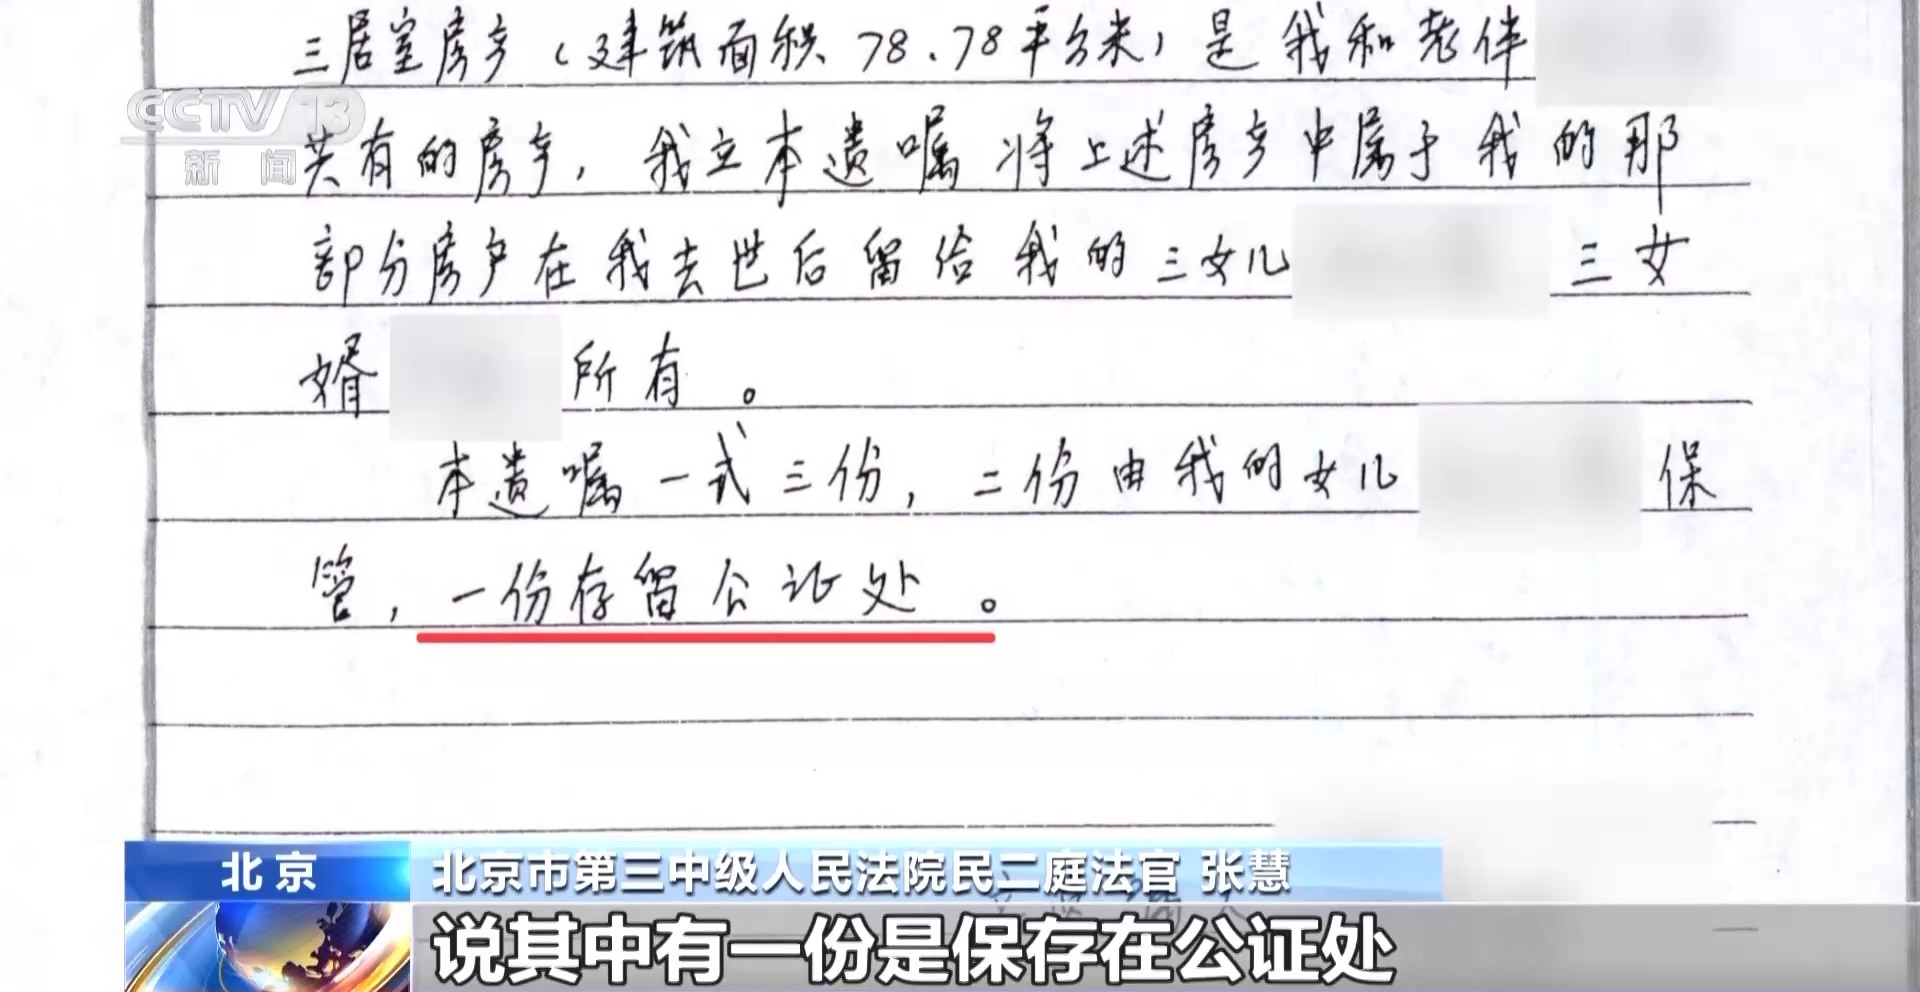 三居室房产（建筑面积78.78平方米）是我和老伴
CCTV 13
新闻
共有的房产，我立本遗嘱将上述房产中属于我的那
部分房产在我去世后留给我的三女儿 三女
婿 所有。
本遗嘱一式三份，二份由我的女儿 保
管，一份存留公证处。
北京
北京市第三中级人民法院民二庭法官 张慧
说其中有一份是保存在公证处